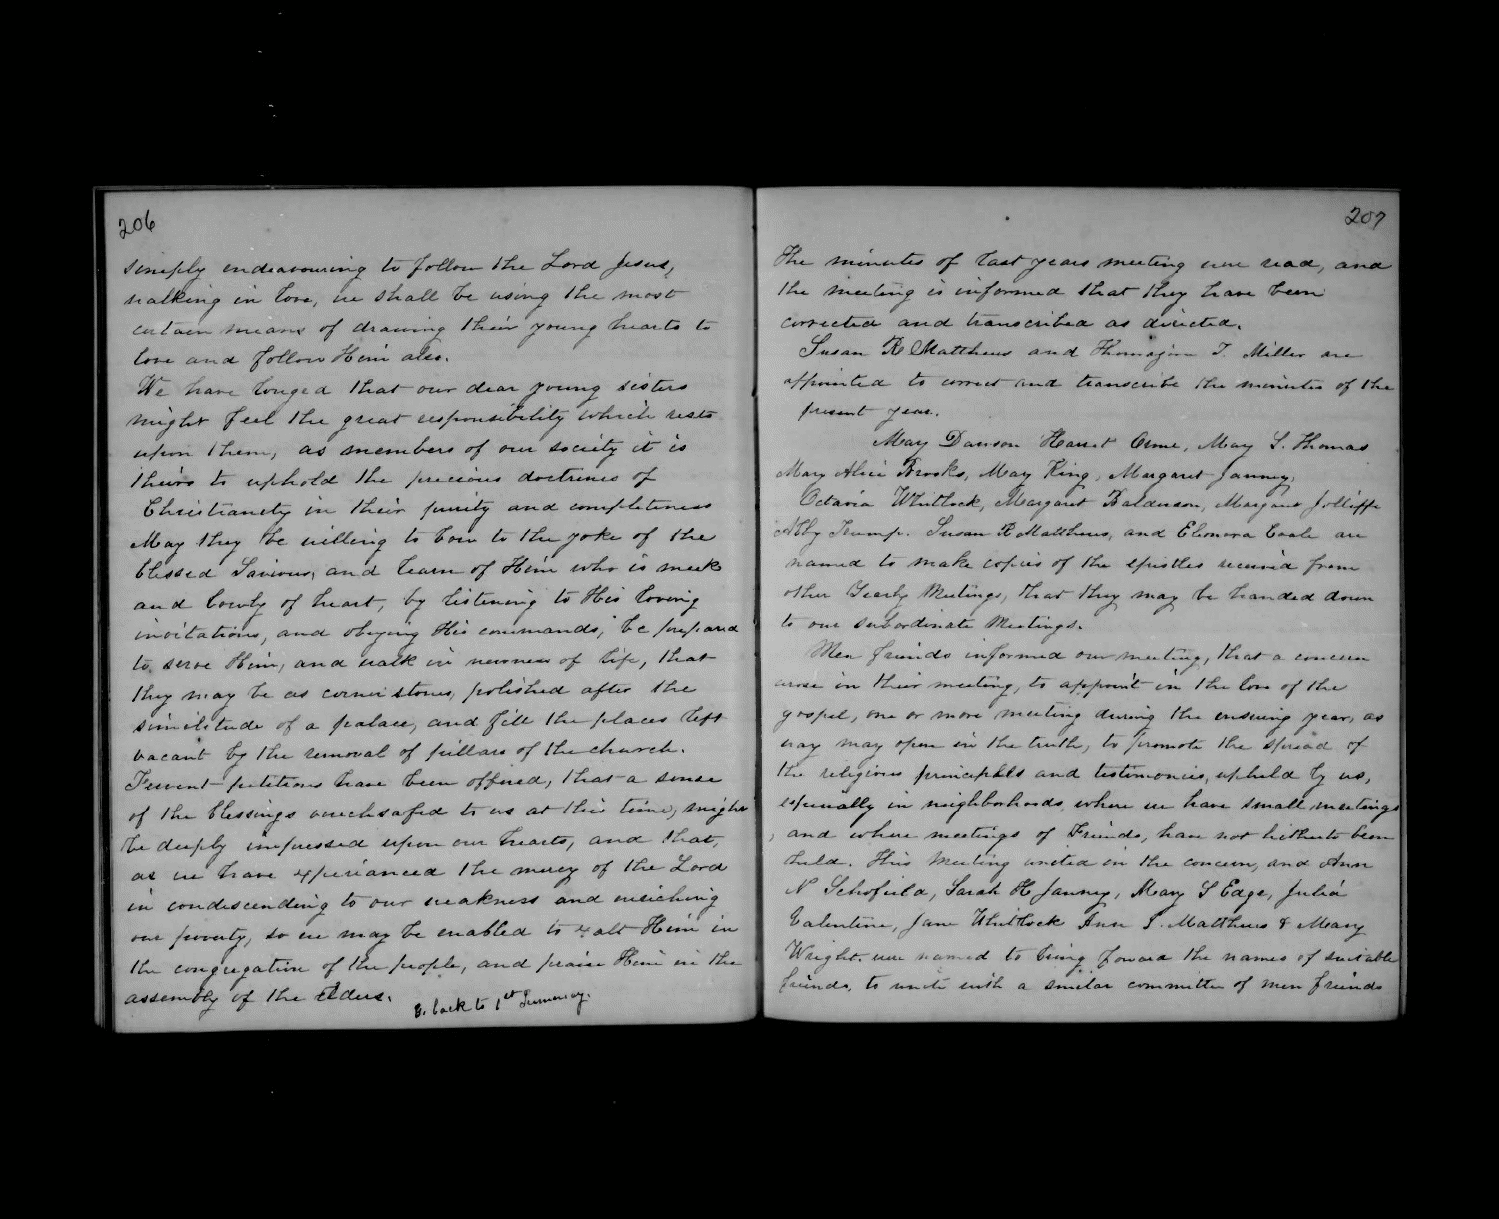 206
simply endeavouring to follow the Lord Jesus,
walking in love, we shall be using the most
certain means of drawing their young hearts to
love and follow Him also.
We have longed that our dear young sisters
might feel the great responsibility which rests
upon them, as members of our society it is
theirs to uphold the precious doctrines of
Christianity in their purity and completeness
May they be willing to bow to the yoke of the
blessed Saviour, and learn of Him who is meek
and lowly of heart, by listening to His loving
invitations, and obeying His commands, be prepared
to serve Him, and walk in newness of life, that
they may be as corner stones, polished after the
similitude of a palace, and fill the places left
vacant by the removal of pillars of the church.
Fervent petitions have been offered, that a sense
of the blessings vouchsafed to us at this time, might
be deeply impressed upon our hearts, and that,
as we have experianced the mercy of the Lord
in condescending to our weakness and enriching
our poverty, so we may be enabled to exalt Him in
the congregation of the people, and praise Him in the
assembly of the Elders.
back to 1st Summary.
207
The minutes of last years meeting were read, and
the meeting is informed that they have been
corrected and transcribed as directed.
Susan R Matthews and Thomazin T. Miller are
appointed to correct and transcribe the minutes of the
present year.
Mary Dawson Harriet Orme, Mary S. Thomas
Mary Alice Brooks, Mary King, Margaret Janney,
Octavia Whitlock, Margaret Balderson, Margaret Jolliffe
Abby Trump. Susan R Matthews, and Elenora Coale are
named to make copies of the epistles received from
other Yearly Meetings, that they may be handed down
to our subordinate Meetings.
Men friends informed our meeting, that a concern
arose in their meeting, to appoint in the love of the
gospel, one or more meeting during the ensuing year, as
way may open in the truth, to promote the spread of
the religious principles and testimonies, upheld by us,
especially in neighborhoods, where we have small meetings
, and where meetings of Friends, have not hitherto been
held. This Meeting united in the concern, and Ann
N Schofield, Sarah H Janney, Mary S Edge, Julia
Valentine, Jane Whitlock Ann S. Matthews & Mary
Wright. were named to bring foward the names of suitable
friends, to unite with a similar committee of men friends